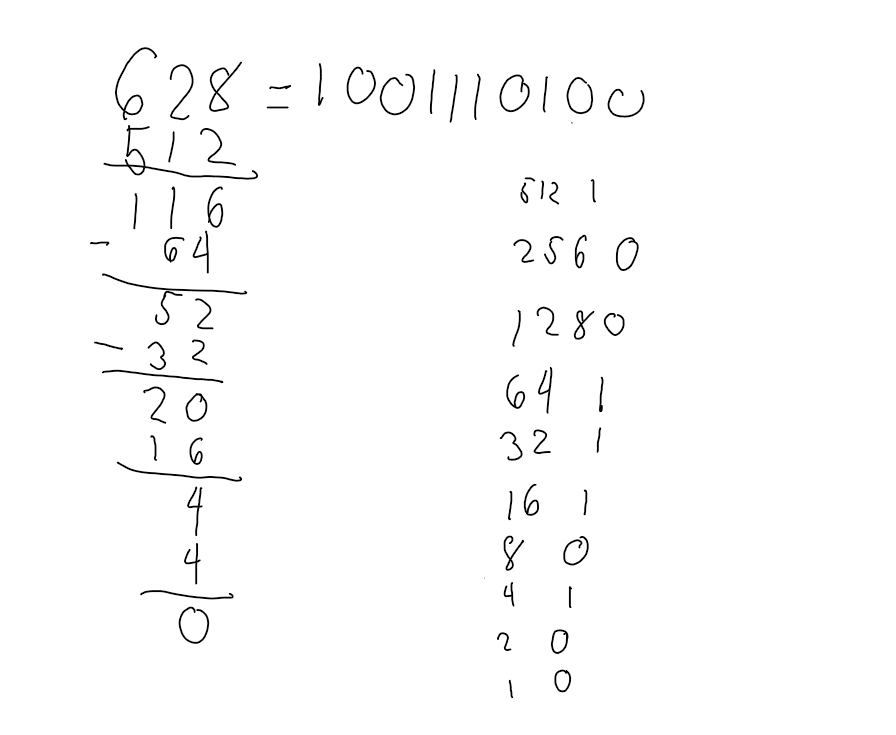 628 = 1001110100
512
116
- 64
52
- 32
20
16
4
4
0
512 1
256 0
128 0
64 1
32 1
16 1
8 0
4 1
2 0
1 0